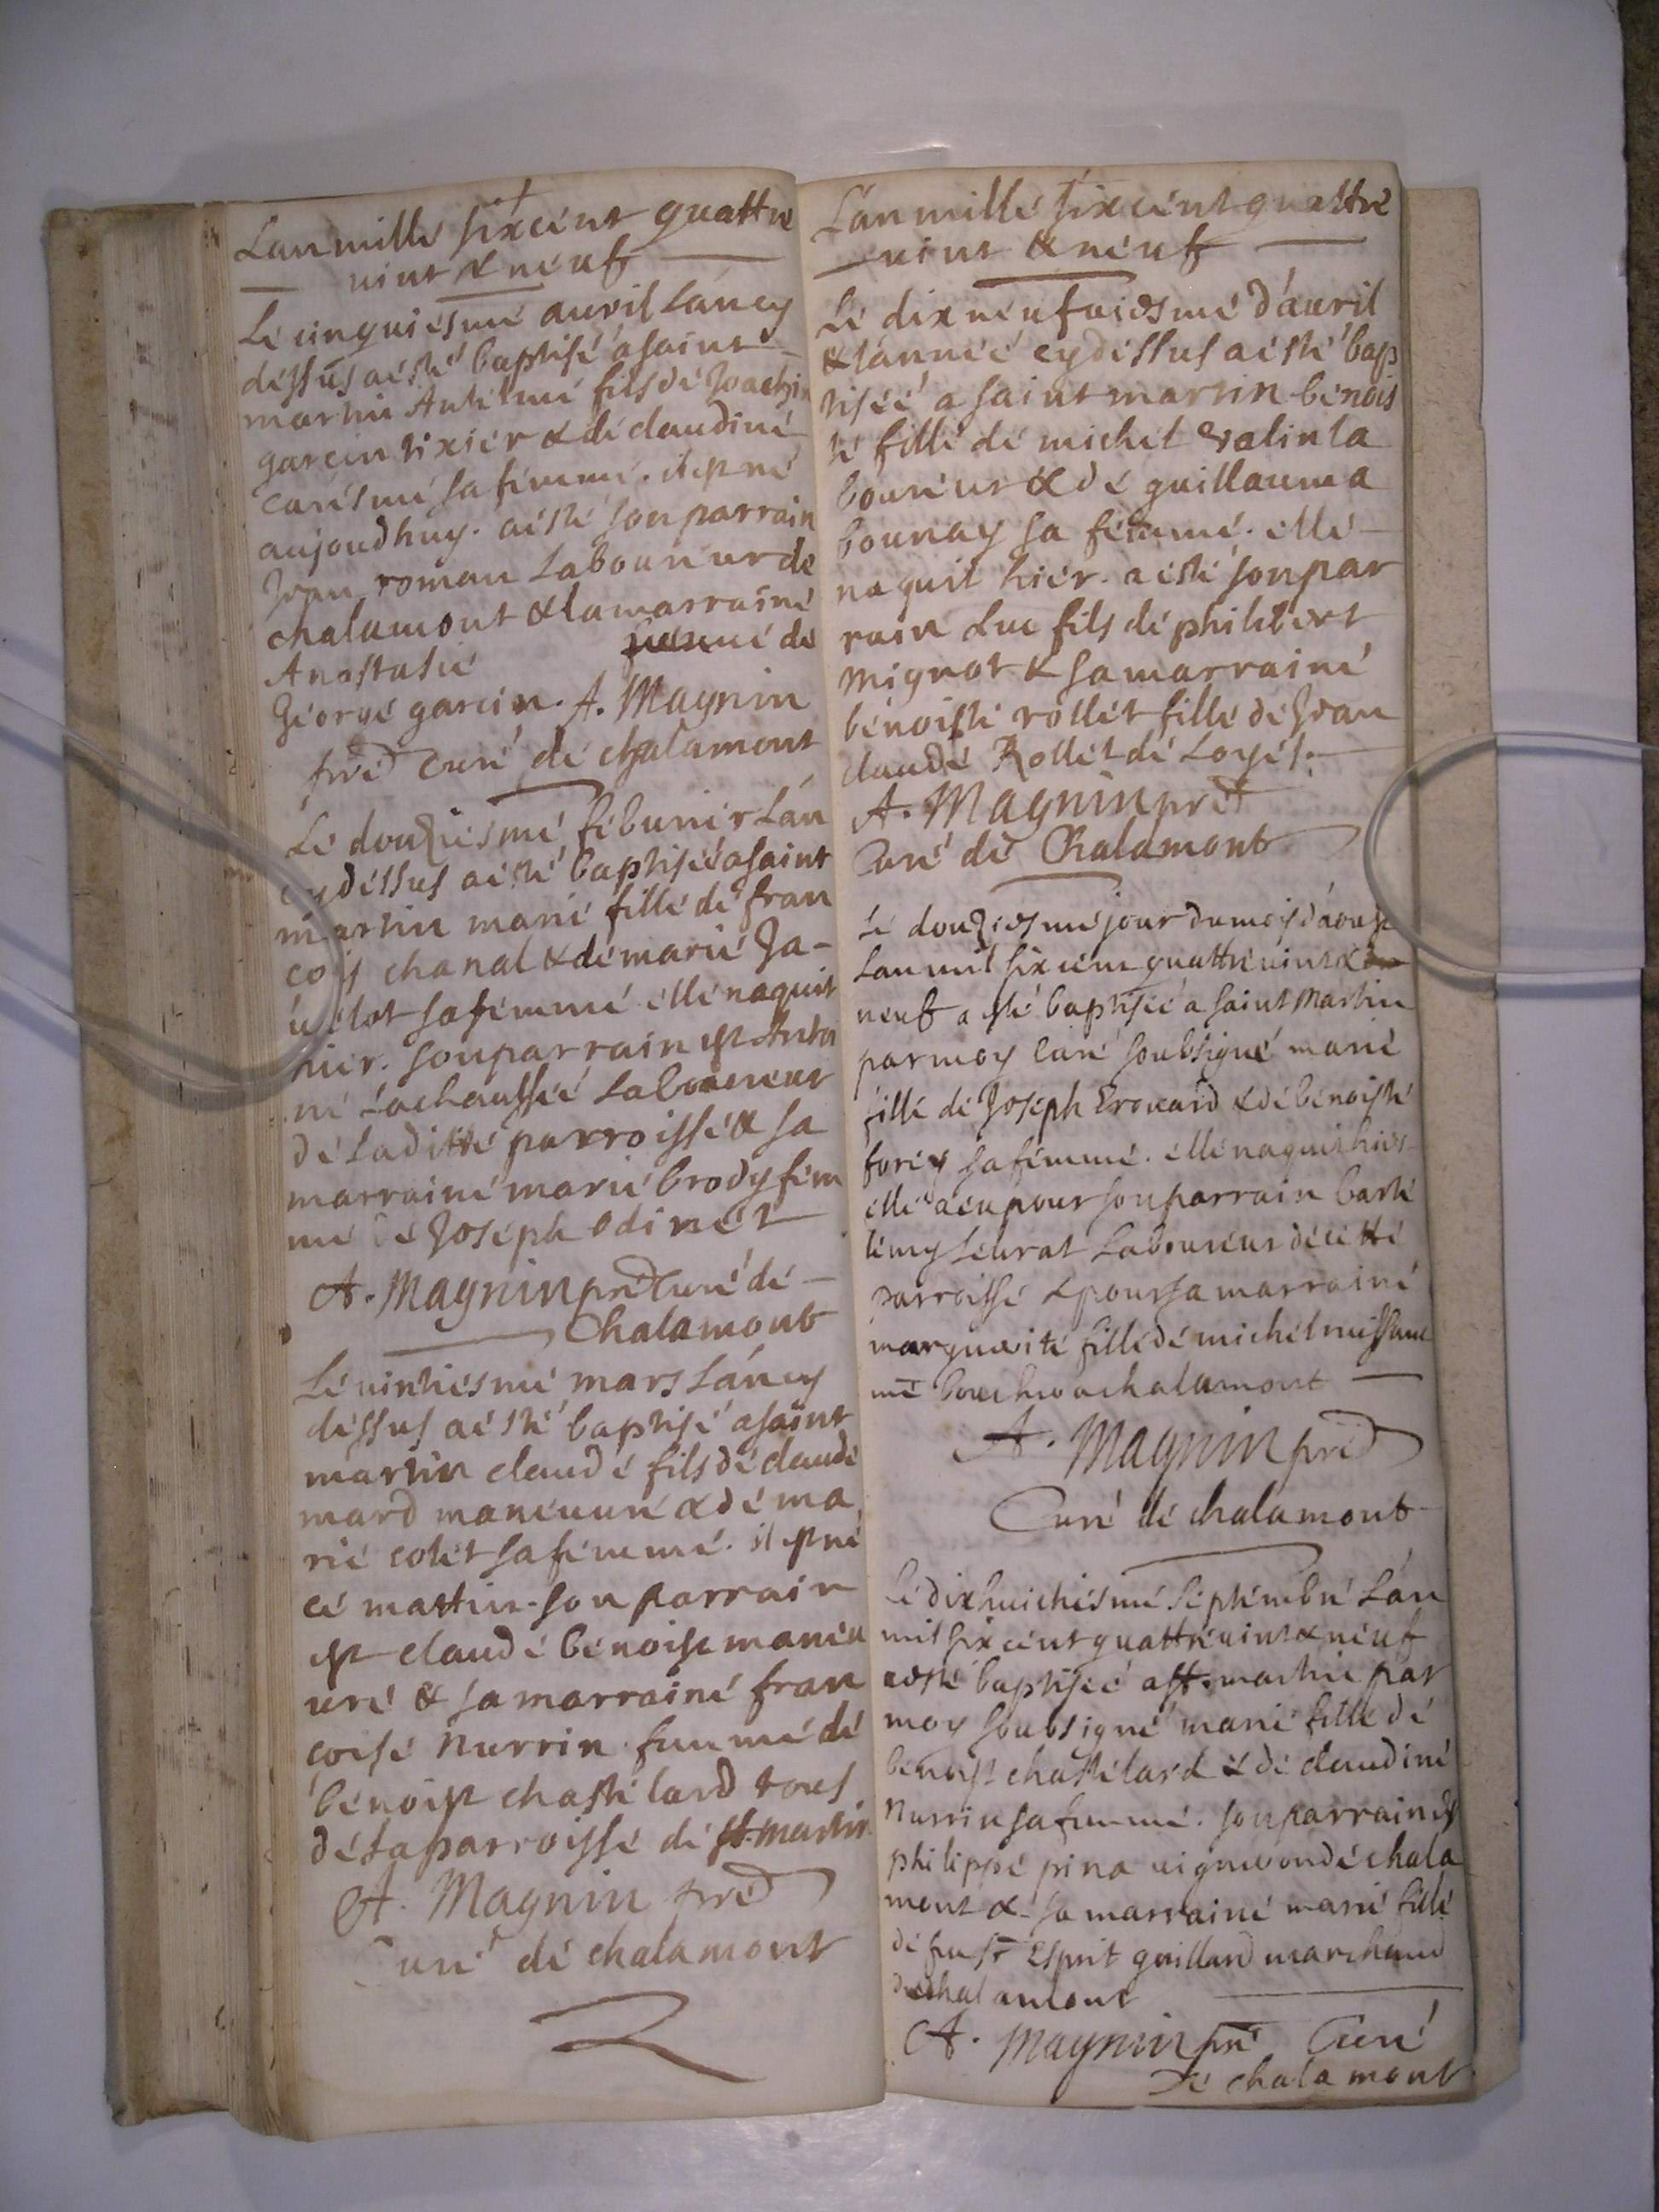 Lan mille sixcént quattre
vint & néuf
Lé cinquiésmé auril láncy
déssus aésté baptisé asaint
martin Antélmé fils dé Joachin
garcin tixiér & dé claudiné
carésmé sa fémmé. il est né
aujoudhuy. aésté son parrain
Jean roman Labouréur de
chalamont & la marrainé
Anastasié fémmé de
Géorgé garcin. A. Magnin
pré Curé dé chalamont
Lé douziésmé féburiér Lán
cydéssus aésté baptiséé asaint
martin marié fillé dé fran
cois chanal & dé marié Ja-
uélot sa fémmé éllé naquit
hiér. son parrain est Antoi
né Lachausséé Laboureur
dé Laditté parroissé & sa
marrainé marié brody fém
mé dé Joséph odinét
A. Magnin pré Curé dé
Chalamont
Lé vintiésmé mars láncy
déssus aésté baptisé asaint
martin claudé fils dé claudé
mard manéuuré & dé ma
rié colét sa fémmé. il est né
cé mattin. son parrain
est claudé bénoist manéu
uré & sa marrainé fran
coisé Nurrin fémmé dé
bénoist chastélard tous
dé la parroissé dé st. martin
A. Magnin pré
Curé dé chalamont
Lán millé sixcént quattré
vint & néuf
Lé dix néufuiesmé dáuril
& lánnéé cydéssus aésté bap
tiséé a saint martin bénois
té fillé dé michél valin la
bouréur & dé guillauma
bounay sa fémmé. éllé
naquit hiér. aésté son par
rain Luc fils dé philibert
mignot & sa marrainé
bénoisté rollét fillé dé Jean
claudé Rollét dé Loyés.
A. Magnin pré
Curé dé Chalamont
Lé douziesmé jour du mois dáoust
Lan mil six cént quattré vint &
néuf a esté baptiséé a saint Martin
par moy Curé soubsigné marié
fillé dé Joséph Erouard & dé bénoisté
foréy sa fémmé. éllé naquit hier
éllé a éu pour son parrain barté
lémy séurat Labouréur dé cétté
parroissé & pour sa marrainé
marguerité fillé dé michél
a chalamont
A. Magnin pré
Curé dé chalamont
Lé dix huichiésmé séptémbré Lán
mil six cént quattré vint & néuf
aesté baptiséé a st. martin par
moy soubsigné marié fillé dé
bénoist chastélard & dé claudiné
Nurrin sa fémmé. son parrain est
philippé pina vigneron dé chala
mont & sa marrainé marié fillé
dé fu sr Esprit guillard marchand
dé chalamont
A. Magnin pré Curé
dé chalamont